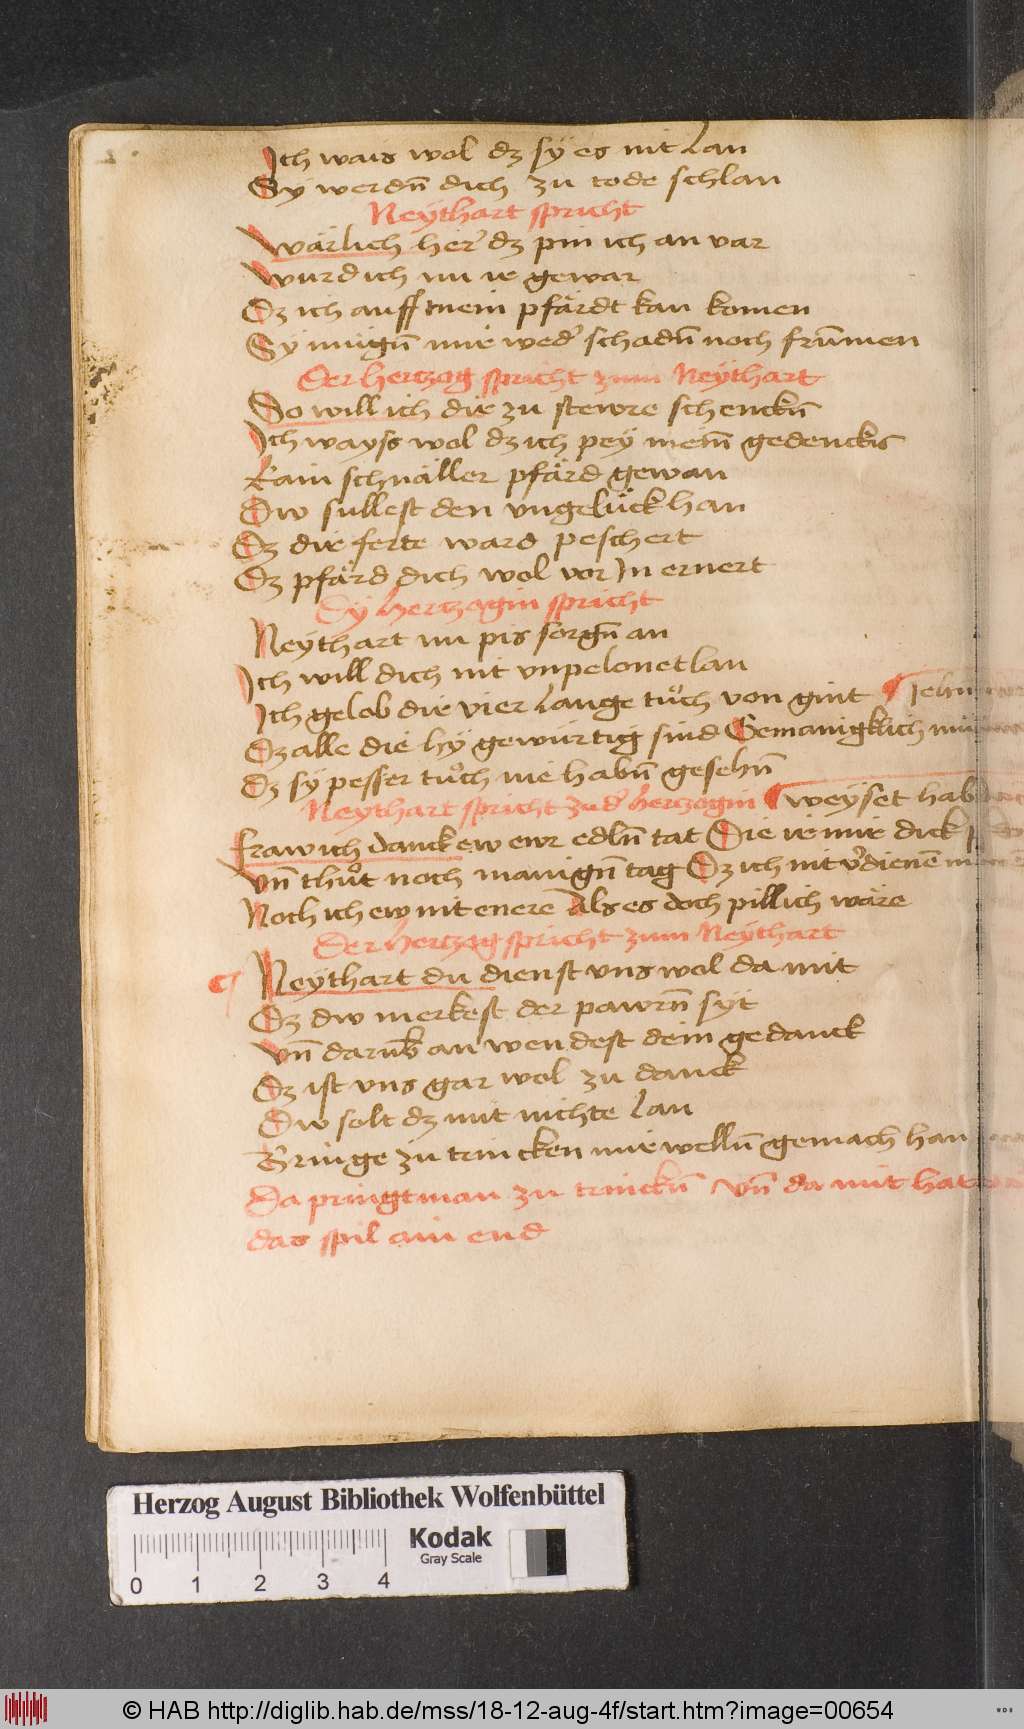 Ich wais wol dz sÿ es nit lan
Sÿ werdn̄ dich zu tode schlan
Neÿthart spricht
Wärlich her̄ dz pin ich an var
Wurd ich nu ie gewar
Dz ich auff mein pfärdt kan komen
Sÿ mügn̄ mir wed' schadn̄ noch frum̄en
Der hertzog spricht zum Neÿthart
So will ich dir zu stewre schenckn̄
Ich wayss wol dz ich peÿ mem̄ gedenckis
Kain schnäller pfärd gewan
Dw sullest den vngelück han
Dz dir ferte ward peschert
Dz pfärd dich wol vor In ernert
Dÿ hertzogin spricht
Neÿthart nu pis sorgn̄ an
Ich will dich nit vnpelonet lan
Ich gelob dir vier lange tuͦch von gint
Dz alle die hÿ gewürtig sind Gemanigklich
Dz sÿ pesser tuͦch nie habn̄ gesehn̄
Neÿthart spricht zu d' hertzogin ¶ weÿset
fraw ich danck ew ewr edln̄ tat Die ir mir dick
Vnn̄ thuͦt noch manign̄ tag Dz ich nit v'dienen̄
Noch ich ew nit enere Als es doch pillich wäre
Der hertzog spricht zum Neÿthart
¶ Neÿthart du dienst vns wol da mit
Dz dw merkest der pawrn̄ sÿt
Vnn̄ darub̄ an wendest dein gedanck
Dz ist vns gar wol zu danck
Dw solt dz mit nichte lan
Bringe zu trincken mir welln̄ gemach han
Da pringt man zu trinckn̄ vnn̄ da mit hat
das spil ain end
Herzog August Bibliothek Wolfenbüttel
Kodak
Gray Scale
0 1 2 3 4
© HAB http://diglib.hab.de/mss/18-12-aug-4f/start.htm?image=00654